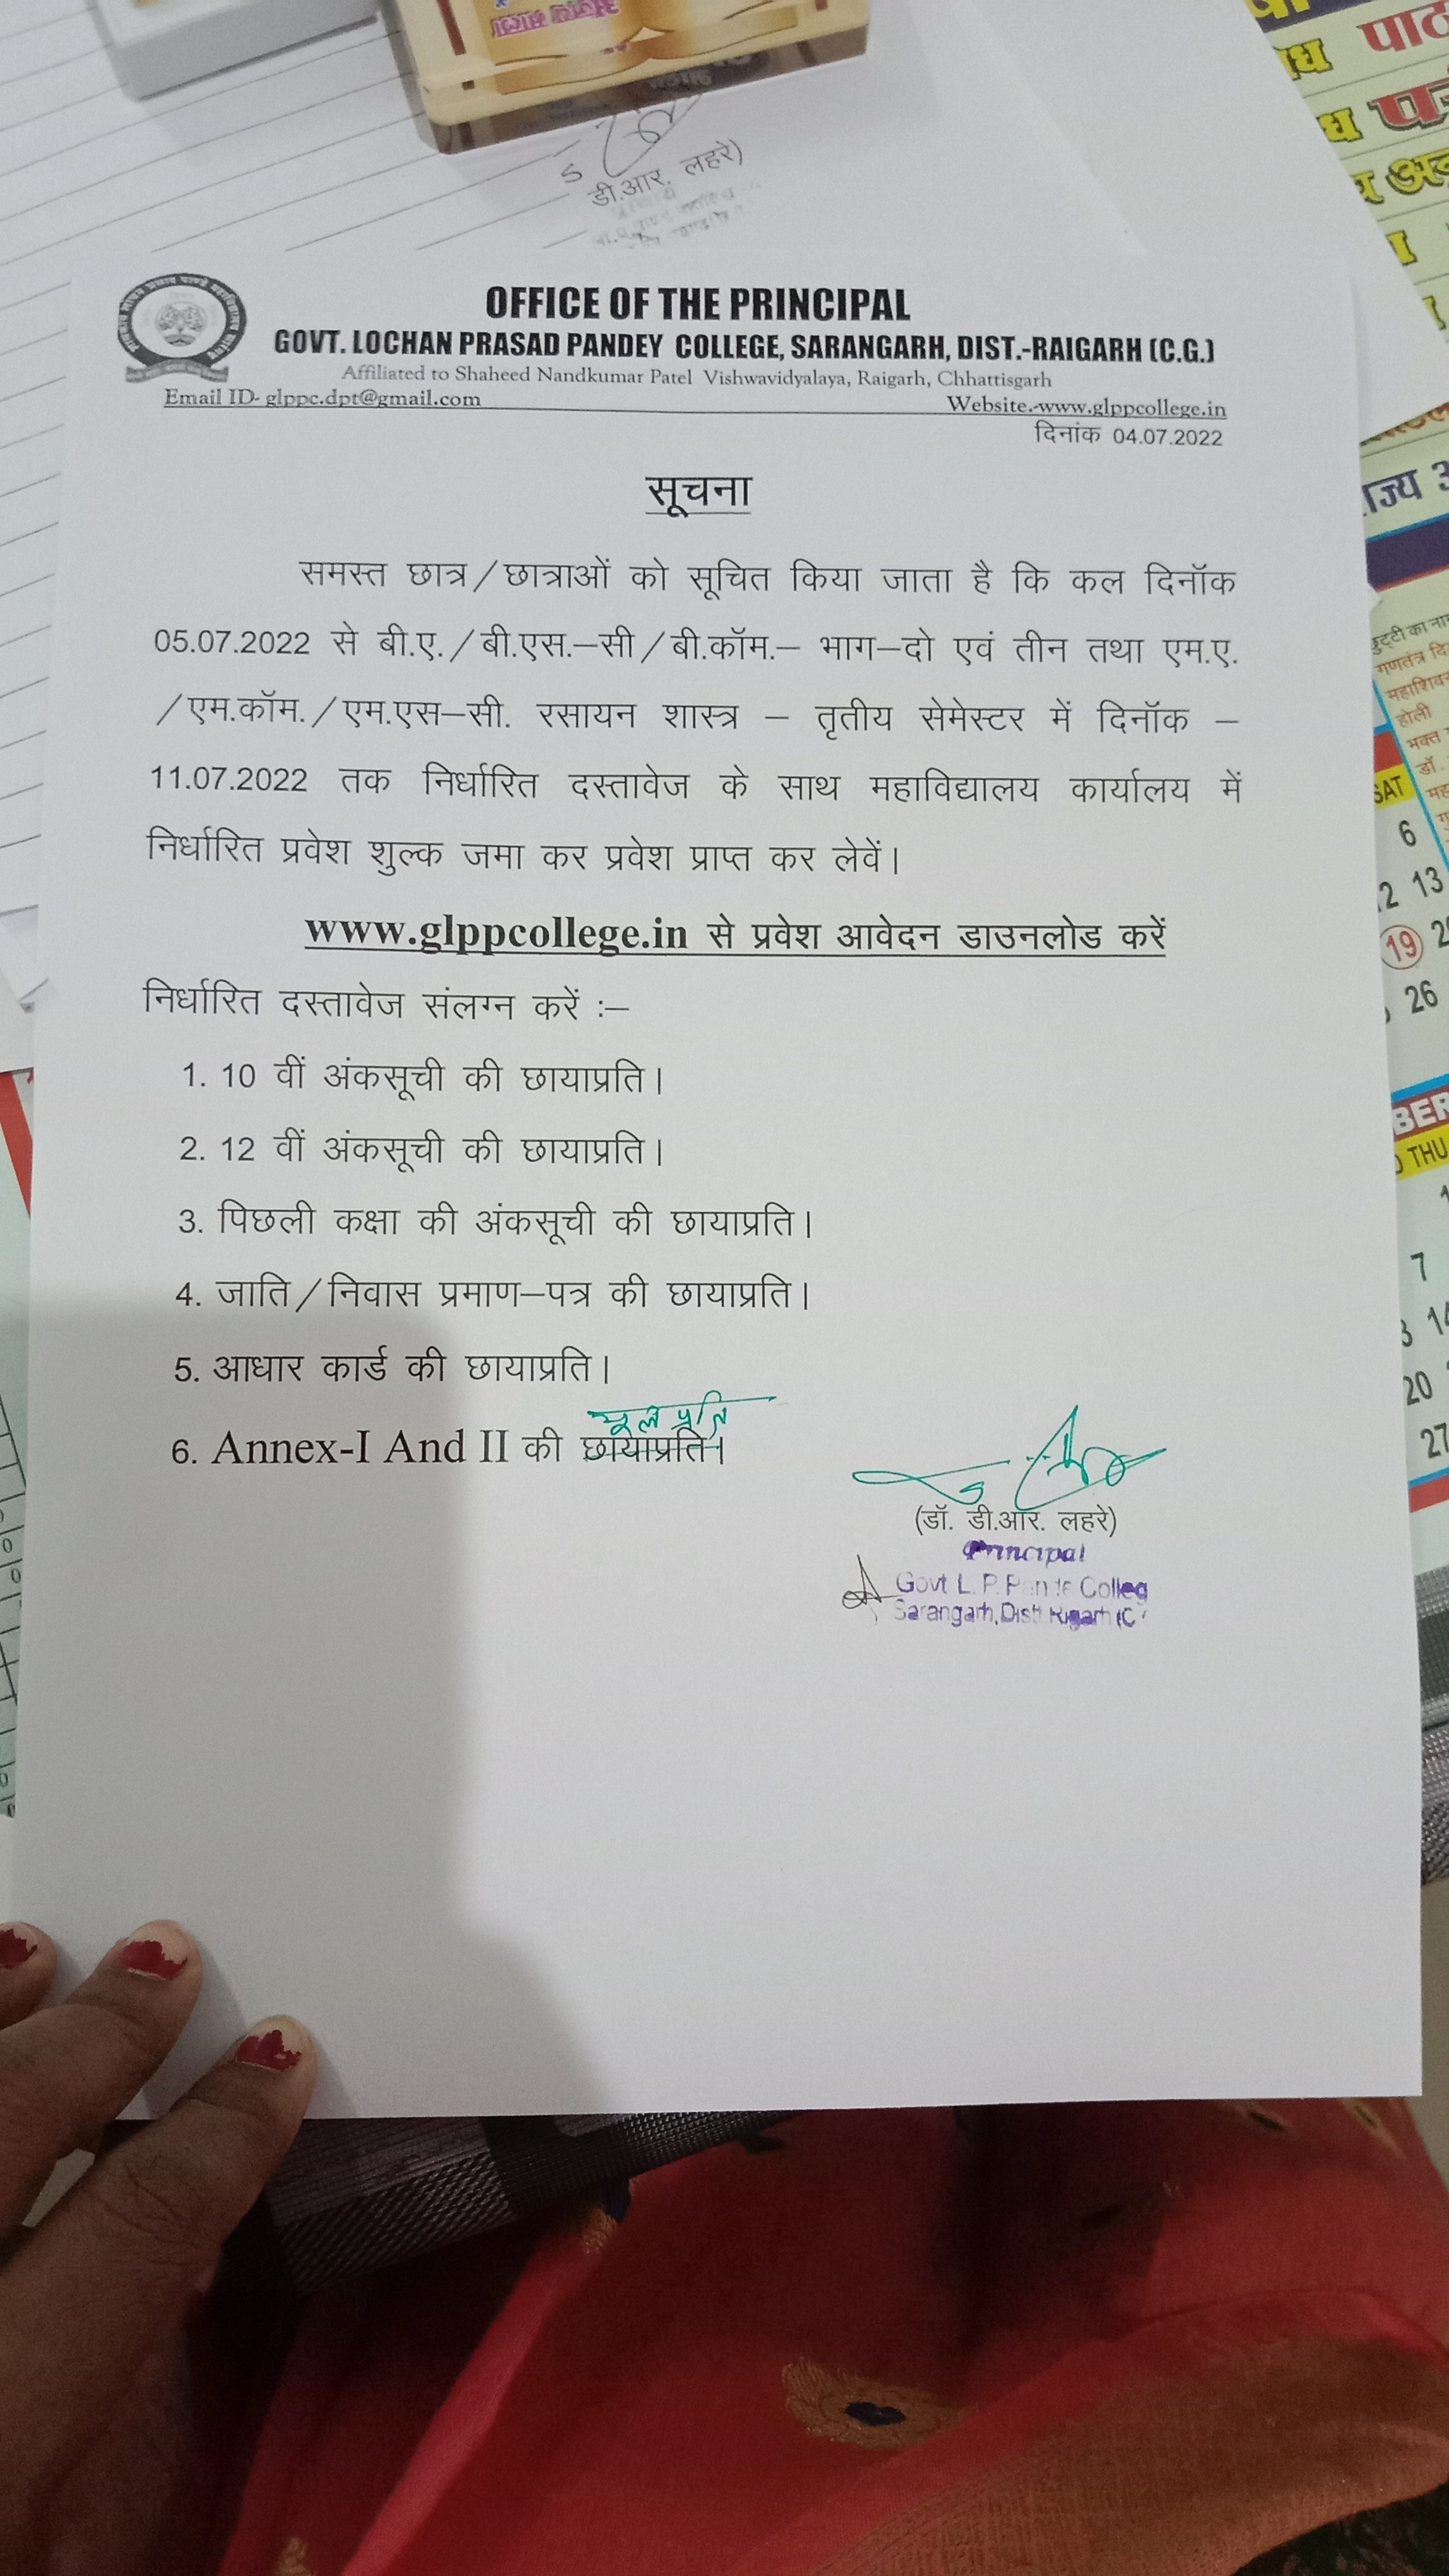 डी.आर. लहरे)
OFFICE OF THE PRINCIPAL
GOVT. LOCHAN PRASAD PANDEY COLLEGE, SARANGARH, DIST.-RAIGARH (C.G.)
Affiliated to Shaheed Nandkumar Patel Vishwavidyalaya, Raigarh, Chhattisgarh
Email ID- glppc.dpt@gmail.com Website.-www.glppcollege.in
दिनांक 04.07.2022
सूचना
समस्त छात्र/छात्राओं को सूचित किया जाता है कि कल दिनॉक
05.07.2022 से बी.ए./बी.एस.–सी/बी.कॉम.– भाग–दो एवं तीन तथा एम.ए.
/एम.कॉम./एम.एस–सी. रसायन शास्त्र – तृतीय सेमेस्टर में दिनॉक –
11.07.2022 तक निर्धारित दस्तावेज के साथ महाविद्यालय कार्यालय में
निर्धारित प्रवेश शुल्क जमा कर प्रवेश प्राप्त कर लेवें।
www.glppcollege.in से प्रवेश आवेदन डाउनलोड करें
निर्धारित दस्तावेज संलग्न करें :–
1. 10 वीं अंकसूची की छायाप्रति।
2. 12 वीं अंकसूची की छायाप्रति।
3. पिछली कक्षा की अंकसूची की छायाप्रति।
4. जाति/निवास प्रमाण–पत्र की छायाप्रति।
5. आधार कार्ड की छायाप्रति।
मूल प्रति
6. Annex-I And II की छायाप्रति।
(डॉ. डी.आर. लहरे)
Principal
Govt L. P. Colleg
Sarangarh, Dist.
पाठ
राज्य
छुट्टी का
गणतंत्र
होली
भक्त
डॉ.
SAT
6
13
19
26
BER
THU
7
14
20
27